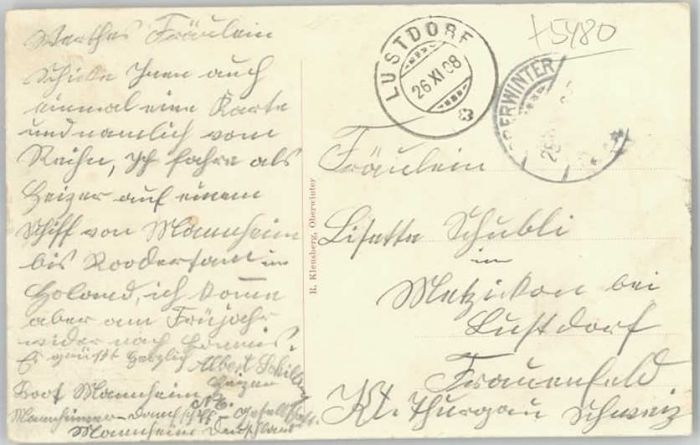 Werthes Fräulein
Schicke Inen auch
einmal eine Karte
und namlich vom
Reihn, Ich fahre als
Heizer auf einem
Schiff von Mannheim
bis Rooderdam in
Holand, ich kome
aber am Früjahr
wider nach
Es grüßt herzlich Albert Schilling
Heizer
Boot Mannheim
Mannheimer-Dampf Gesellschaft
Mannheim Deutschland
R. Kleusberg, Oberwinter
LUSTDORF
26 XI 08
OBERWINTER
+5480
Fräulein
Lisette Schubli
in
Metzikon bei
Lustdorf
Frauenfeld
Kt. Thurgau Schweiz